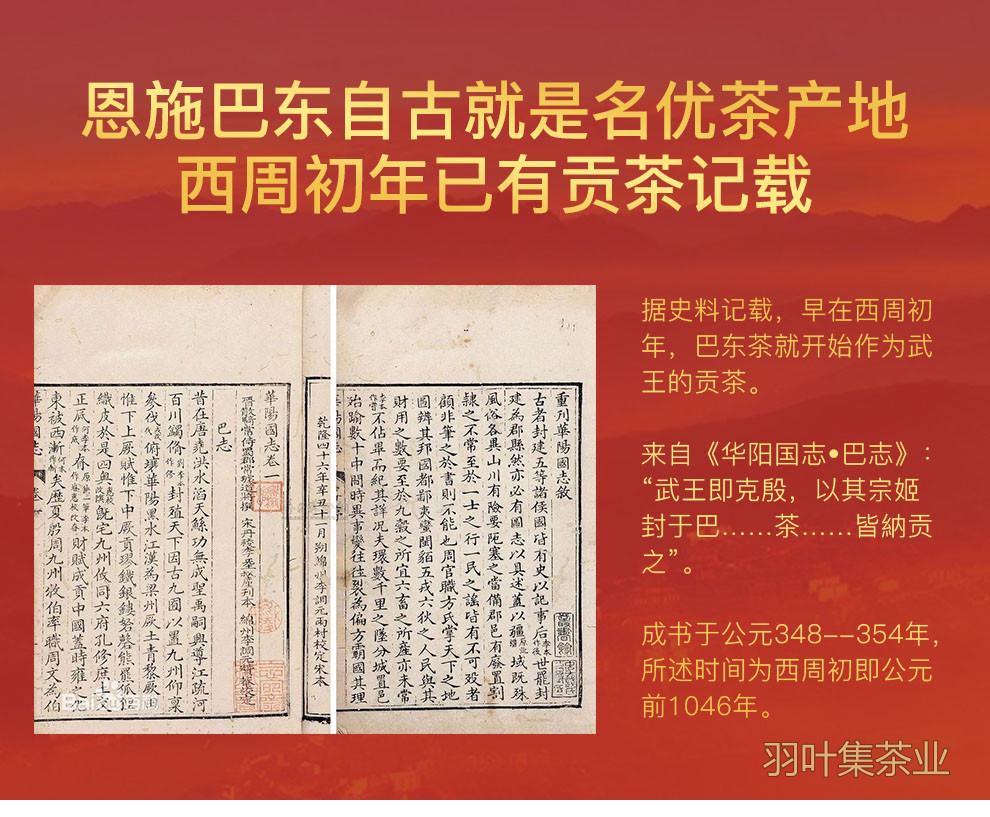 恩施巴东自古就是名优茶产地
西周初年已有贡茶记载
据史料记载，早在西周初
年，巴东茶就开始作为武
王的贡茶。
来自《华阳国志•巴志》：
“武王即克殷，以其宗姬
封于巴……茶……皆納贡
之”。
成书于公元348--354年，
所述时间为西周初即公元
前1046年。
羽叶集茶业
重刊華陽國志敘
古者封建五等諸侯國皆有史以記事后世罷封
建為郡縣然亦必有圖志以具述蓋以疆域既殊
風俗各異山川有險要阨塞之當備郡邑有廢置割
隸之不常至於一士之行一民之謠皆有不可沒者
顧非筆之於書則不能也周官職方氏掌天下之地
圖辨其邦國都鄙夷蠻閩貊五戎六狄之人民與其
財用之數要至於九穀之所宜六畜之所產亦未常
不佔畢而紀其詳況夫環數千里之墜分城置邑
殆踰數十中間時異事變往往裂為偏方霸國其理
乾隆四十六年辛丑十二月朔綿州李調元雨村校定宋本
華陽國志卷一
巴志
昔在唐堯洪水滔天鯀功無成聖禹嗣興導江疏河
百川蠲脩封殖天下因古九囿以置九州仰稟
參伐俯壤華陽黑水江漢為梁州厥土青黎厥田
惟下上厥賦惟下中厥貢璆鐵銀鏤砮磬熊羆狐狸
織皮於是四奧既宅九州攸同六府孔修庶土交
正厎財賦成貢中國蓋時雍之
東被西漸矣歷夏殷周九州牧伯率職周文為伯
Bai